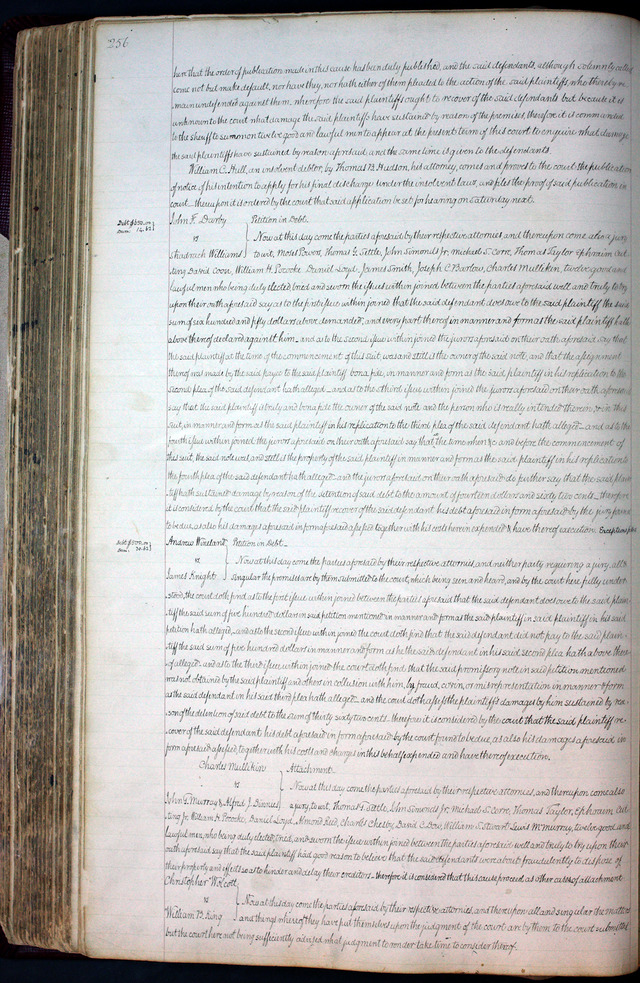 256
hen that the order of publication made in this cause has been duly published, and the said defendants, although solemnly called
come not but make default, nor have they, nor hath either of them pleaded to the action of the said plaintiffs, who thereby re-
main undefended against them, wherefore the said plaintiffs ought to recover of the said defendants but because it is
unknown to the court what damage the said plaintiffs have sustained by reason of the premises, therefore it is commanded
to the sheriff to summon twelve good and lawful men to appear at the present term of this court to enquire what damage
the said plaintiffs have sustained by reason aforesaid and the same time is given to the defendants.
William C. Hall, an insolvent debtor, by Thomas B. Hudson, his attorney, comes and proves to the court the publication
of notice of his intention to apply for his final discharge under the insolvent laws, and files the proof of said publication in
court - thereupon it is ordered by the court that said application be set for hearing on Saturday next.
John F. Darby } Petition in Debt.
Debt $650.00
Dam. 14.62
vs Now at this day come the parties aforesaid by their respective attornies and thereupon come also a jury
Shadrach Williams to wit, Moses Powers, Thomas G. Settle, John Simonds Jr, Michael S. Cerre, Thomas Taylor Ephraim Cut
ting David Coon, William H. Pococke Daniel Loyd, James Smith, Joseph C. Barlow, Charles Mulliken, twelve good and
lawful men who being duly elected tried and sworn the issues within joined between the parties aforesaid well and truly to try
upon their oath aforesaid say as to the first issue within joined that the said defendant does owe to the said plaintiff the said
sum of six hundred and fifty dollars above demanded, and every part thereof in manner and form as the said plaintiff hath
above thereof declared against him - and as to the second issue within joined the jurors aforesaid on their oath aforesaid say that
the said plaintiff at the time of the commencement of this suit was and still is the owner of the said note, and that the assignment
thereof was made by the said payee to the said plaintiff bona fide, in manner and form as the said plaintiff in his replication to the
second plea of the said defendant hath alleged - and as to the third issue within joined the jurors aforesaid on their oath aforesaid
say that the said plaintiff is truly and bona fide the owner of the said note and the person who is really interested therein & in this
suit, in manner and form as the said plaintiff in his replication to the third plea of the said defendant hath alleged - and as to the
fourth issue within joined, the jurors aforesaid on their oath aforesaid say that the time when &c and before the commencement of
this suit, the said note was, and still is the property of the said plaintiff in manner and form as the said plaintiff in his replication to
the fourth plea of the said defendant hath alleged - and the jurors aforesaid on their oath aforesaid do further say that the said plain-
tiff hath sustained damage by reason of the detention of said debt to the amount of fourteen dollars and sixty two cents - therefore
it is considered by the court that the said plaintiff recover of the said defendant his debt aforesaid in form aforesaid by the jury found
to be due, as also his damages aforesaid in form aforesaid assessed together with his costs herein expended & have thereof execution. Exceptions
Andrew Wineland } Petition in Debt -
Debt $500.00
Dam.
vs Now at this day come the parties aforesaid by their respective attornies, and neither party requiring a jury, all &
James Knight singular the premises are by them submitted to the court, which being seen and heard, and by the court here fully under
stood, the court doth find as to the first issue within joined between the parties aforesaid that the said defendant does owe to the said plain-
tiff the said sum of five hundred dollars in said petition mentioned in manner and form as the said plaintiff in said plaintiff in his said
petition hath alleged, and as to the second issue within joined the court doth find that the said defendant did not pay to the said plain-
tiff the said sum of five hundred dollars in manner and form as he the said defendant in his said second plea hath above there
of alleged, and as to the third issue within joined the court doth find that the said promissory note in said petition mentioned
was not obtained by the said plaintiff and others in collusion with him, by fraud, covin, or misrepresentation in manner & form
as the said defendant in his said third plea hath alleged - and the court doth assess the plaintiff's damages by him sustained by rea-
son of the detention of said debt to the sum of thirty sixty two cents. therefore it is considered by the court that the said plaintiff re-
cover of the said defendant his debt aforesaid in form aforesaid by the court found to be due, as also his damages aforesaid in
form aforesaid assessed, together with his costs and charges in this behalf expended and have thereof execution.
Charles Mullikin } Attachment -
vs Now at this day come the parties aforesaid by their respective attornies, and thereupon come also
John F. Murray & Alfred J. Binnies a jury, to wit, Thomas G. Settle, John Simonds Jr, Michael S. Cerre, Thomas Taylor, Ephraim Cut
ting Jr, William H. Pococke, Daniel Loyd, Almond Reid, Charles Chesby, David C. Dow, William Stewart Lewis McMurray, twelve good and
lawful men, who being duly elected, tried, and sworn the issue within joined between the parties aforesaid well and truly to try upon their
oath aforesaid say that the said plaintiff had good reason to believe that the said defendants were about fraudulently to dispose of
their property and effects so as to hinder and delay their creditors - therefore it is considered that this cause proceed as other cases of attachment
Christopher Wolcott
vs Now at this day come the parties aforesaid by their respective attornies, and thereupon all and singular the matters
William B. King and things whereof they have put themselves upon the judgment of the court are by them to the court submitted
but the court here not being sufficiently advised what judgment to render take time to consider thereof.